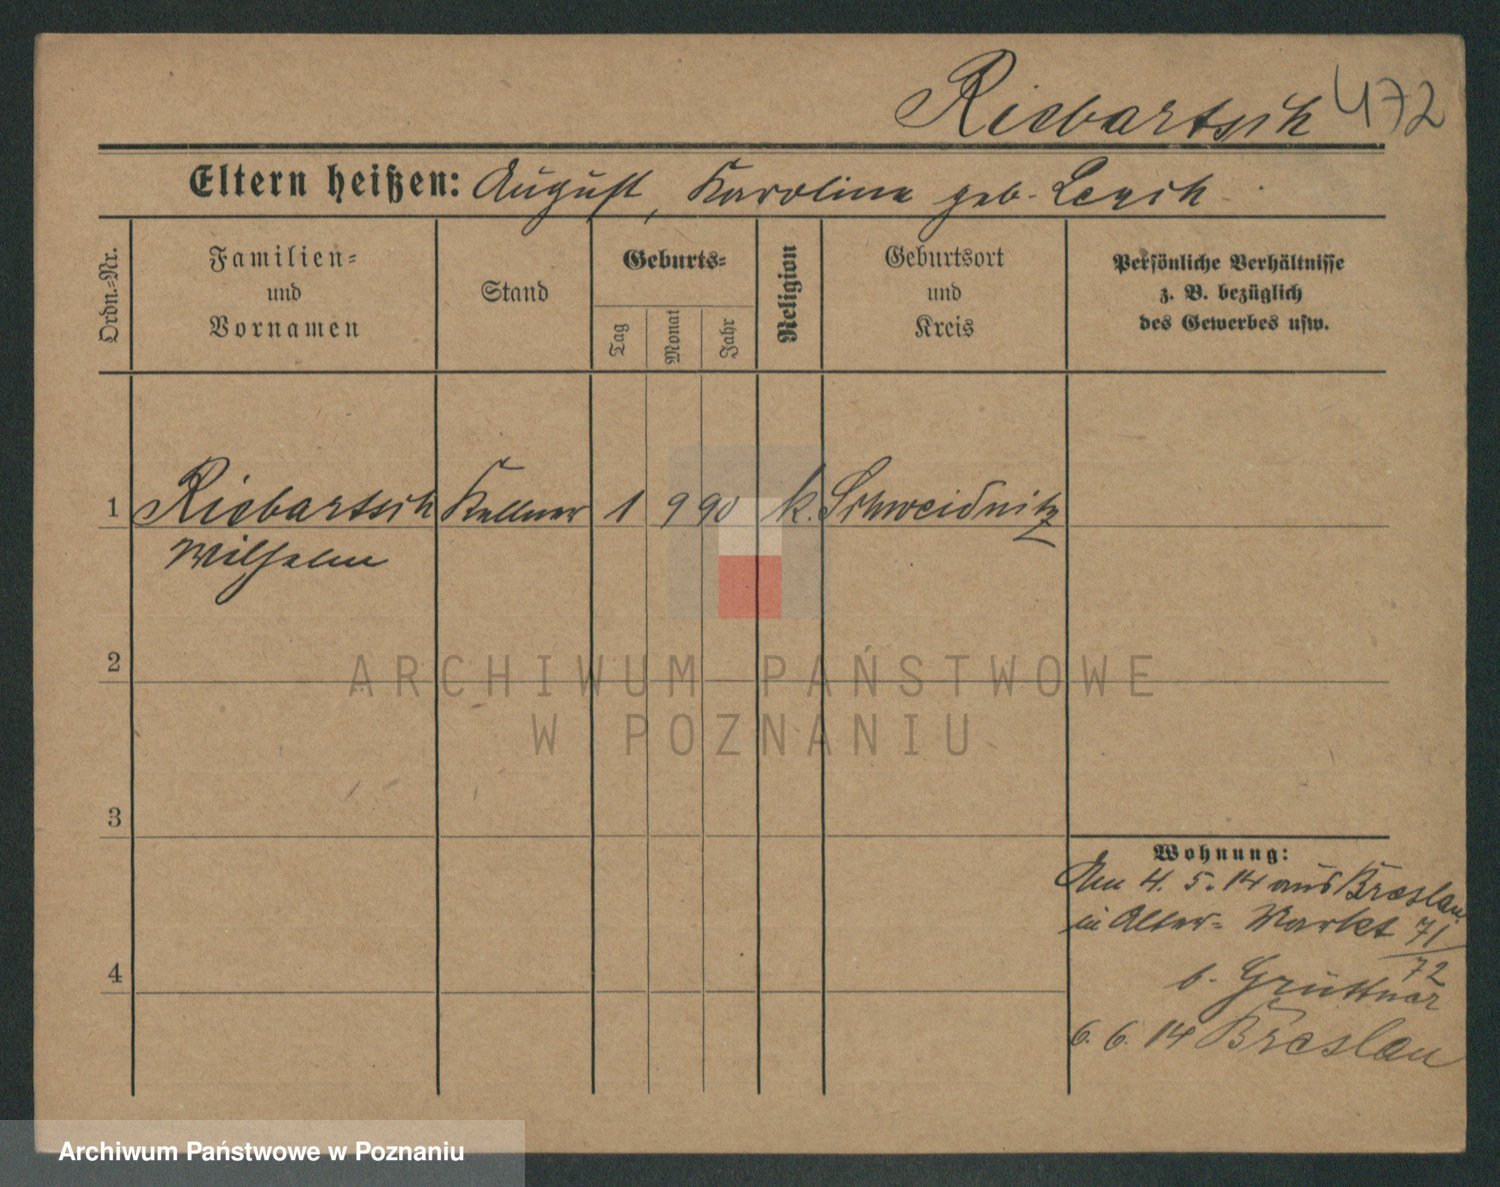 Riebartsch 472
Eltern heißen: August, Karolina geb. Lensch
Ordn.=Nr.
Familien=
und
Vornamen
Stand
Geburts=
Tag
Monat
Jahr
Religion
Geburtsort
und
Kreis
Persönliche Verhältnisse
z. B. bezüglich
des Gewerbes usw.
1 Riebartsch Kellner 1 9 90 k. Schweidnitz
Wilhelm
2
3
4
Wohnung:
Am 4. 5. 14 aus Breslau
in Alter= Markt 71/72
b. Grüttner
6. 6. 14 Breslau
ARCHIWUM PAŃSTWOWE
W POZNANIU
Archiwum Państwowe w Poznaniu